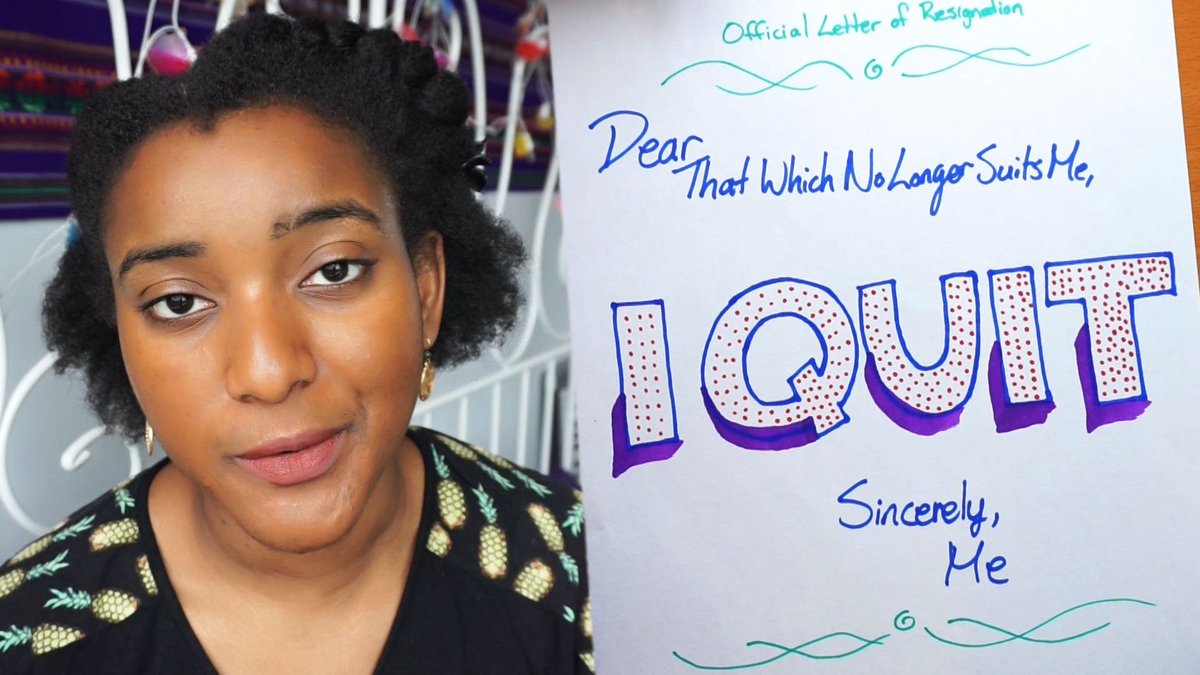 Official Letter of Resignation
Dear
That Which No Longer Suits Me,
I QUIT
Sincerely,
Me